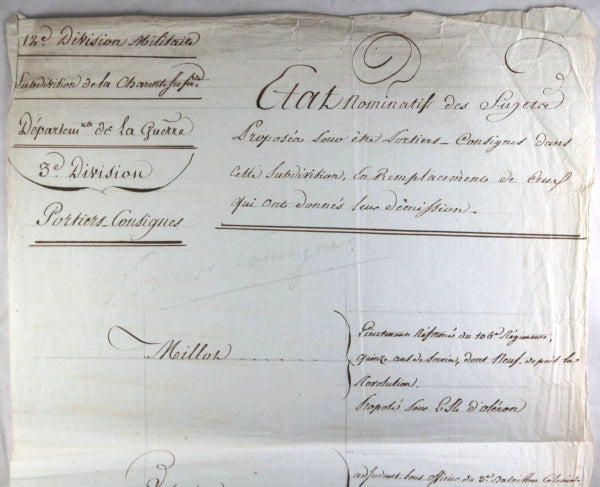 12e. Division Militaire
Subdivision de la Charente Infre.
Départemnts de la Guerre
3e. Division
Portiers-Consignes
Etat Nominatif des Sujets
Proposés pour être Portiers-Consignes dans
cette Subdivision, en Remplacement de Ceux
qui ont donnés leur démission.
Portiers Consignes
Millot
Lieutenant Réformé du 106e. Régiment,
quinze ans de Service, dont Neuf depuis la
Revolution.
Proposé pour L'Isle d'oléron
adjudant Sous officier du 3e. Bataillon Colonial